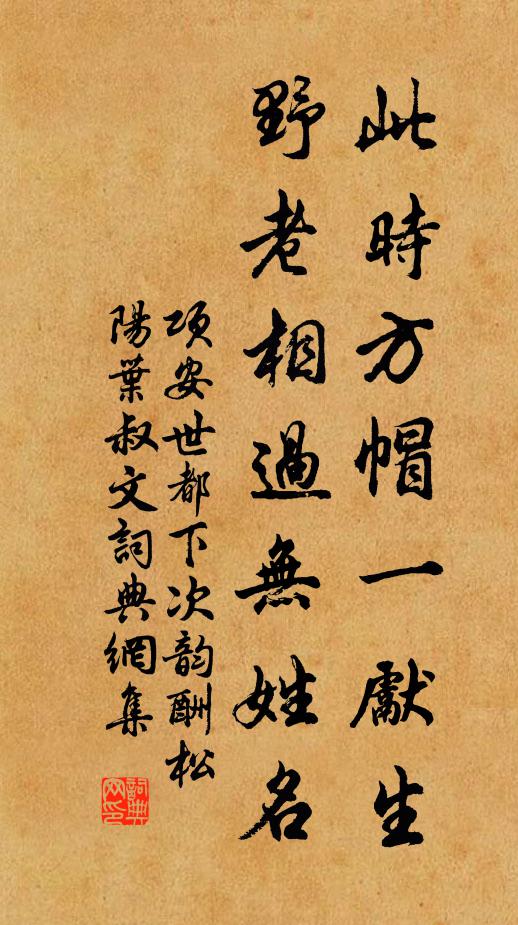 此時方帽一獻生
野老相過無姓名
項安世都下次韵酬松
陽葉叔文詞典網集
詞典网印